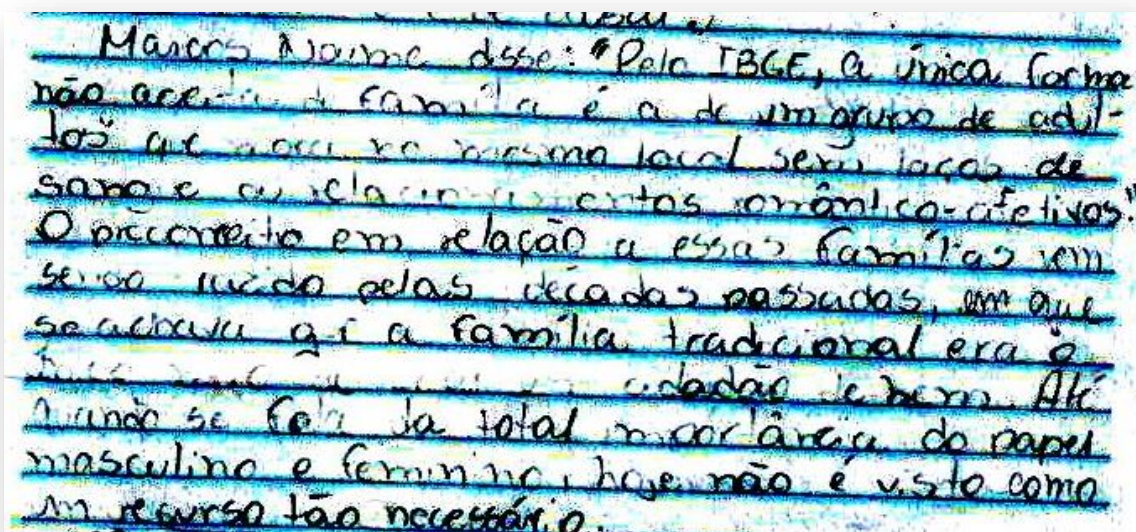 Marcos Naime disse: "Pelo IBGE, a única forma
não aceita de família é a de um grupo de adul-
tos que mora no mesmo local sem laços de
sangue ou relacionamentos romântico-afetivos."
O preconceito em relação a essas famílias vem
sendo pelas décadas passadas, em que
se achava q a família tradicional era o
cidadão de bem. Até
quando se fala da total importância do papel
masculino e feminino, hoje não é visto como
um recurso tão necessário.